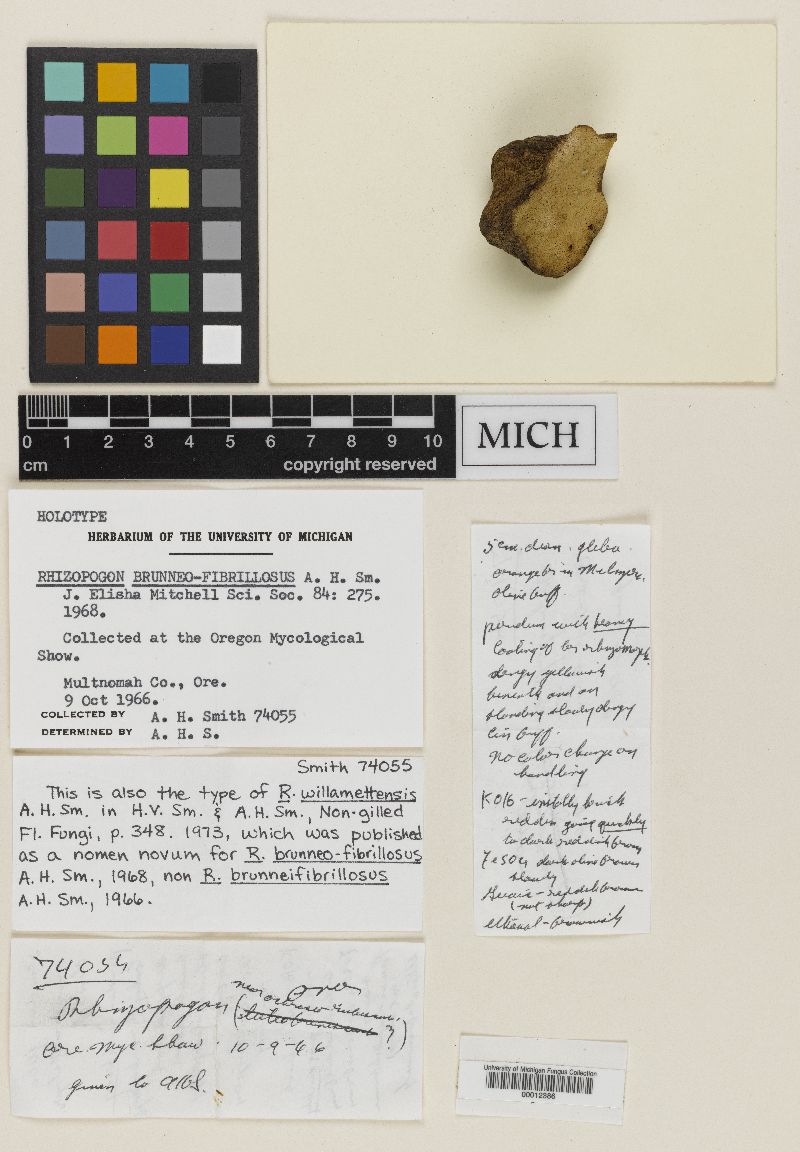 0 1 2 3 4 5 6 7 8 9 10
cm copyright reserved
MICH
HOLOTYPE
HERBARIUM OF THE UNIVERSITY OF MICHIGAN
RHIZOPOGON BRUNNEO-FIBRILLOSUS A. H. Sm.
J. Elisha Mitchell Sci. Soc. 84: 275.
1968.
Collected at the Oregon Mycological
Show.
Multnomah Co., Ore.
9 Oct 1966.
COLLECTED BY A. H. Smith 74055
DETERMINED BY A. H. S.
Smith 74055
This is also the type of R. willamettensis
A.H.Sm. in H.V. Sm. & A.H.Sm., Non-gilled
Fl. Fungi, p. 348. 1973, which was published
as a nomen novum for R. brunneo-fibrillosus
A.H. Sm., 1968, non R. brunneifibrillosus
A.H. Sm., 1966.
Rhizopogon
10-9-66
5 cm. gleba
olive buff.
with
dingy
beneath and on
standing slowly dingy
buff.
no color change on
handling
KOH -
going quickly
to dark reddish brown
dark olive brown
slowly
Guaiac - reddish brown
(not sharp)
University of Michigan Fungus Collection
00012386